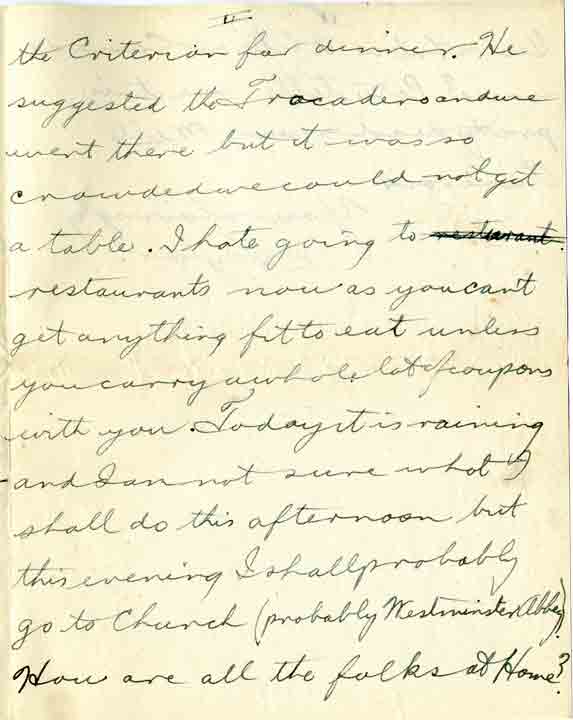 II
the Criterion for dinner. He
suggested the Trocadero and we
went there but it was so
crowded we could not get
a table. I hate going to restaurant.
restaurants now as you can't
get anything fit to eat unless
you carry a whole lot of coupons
with you. Today it is raining
and I am not sure what I
shall do this afternoon but
this evening I shall probably
go to Church (probably Westminster Abbey).
How are all the folks at Home?